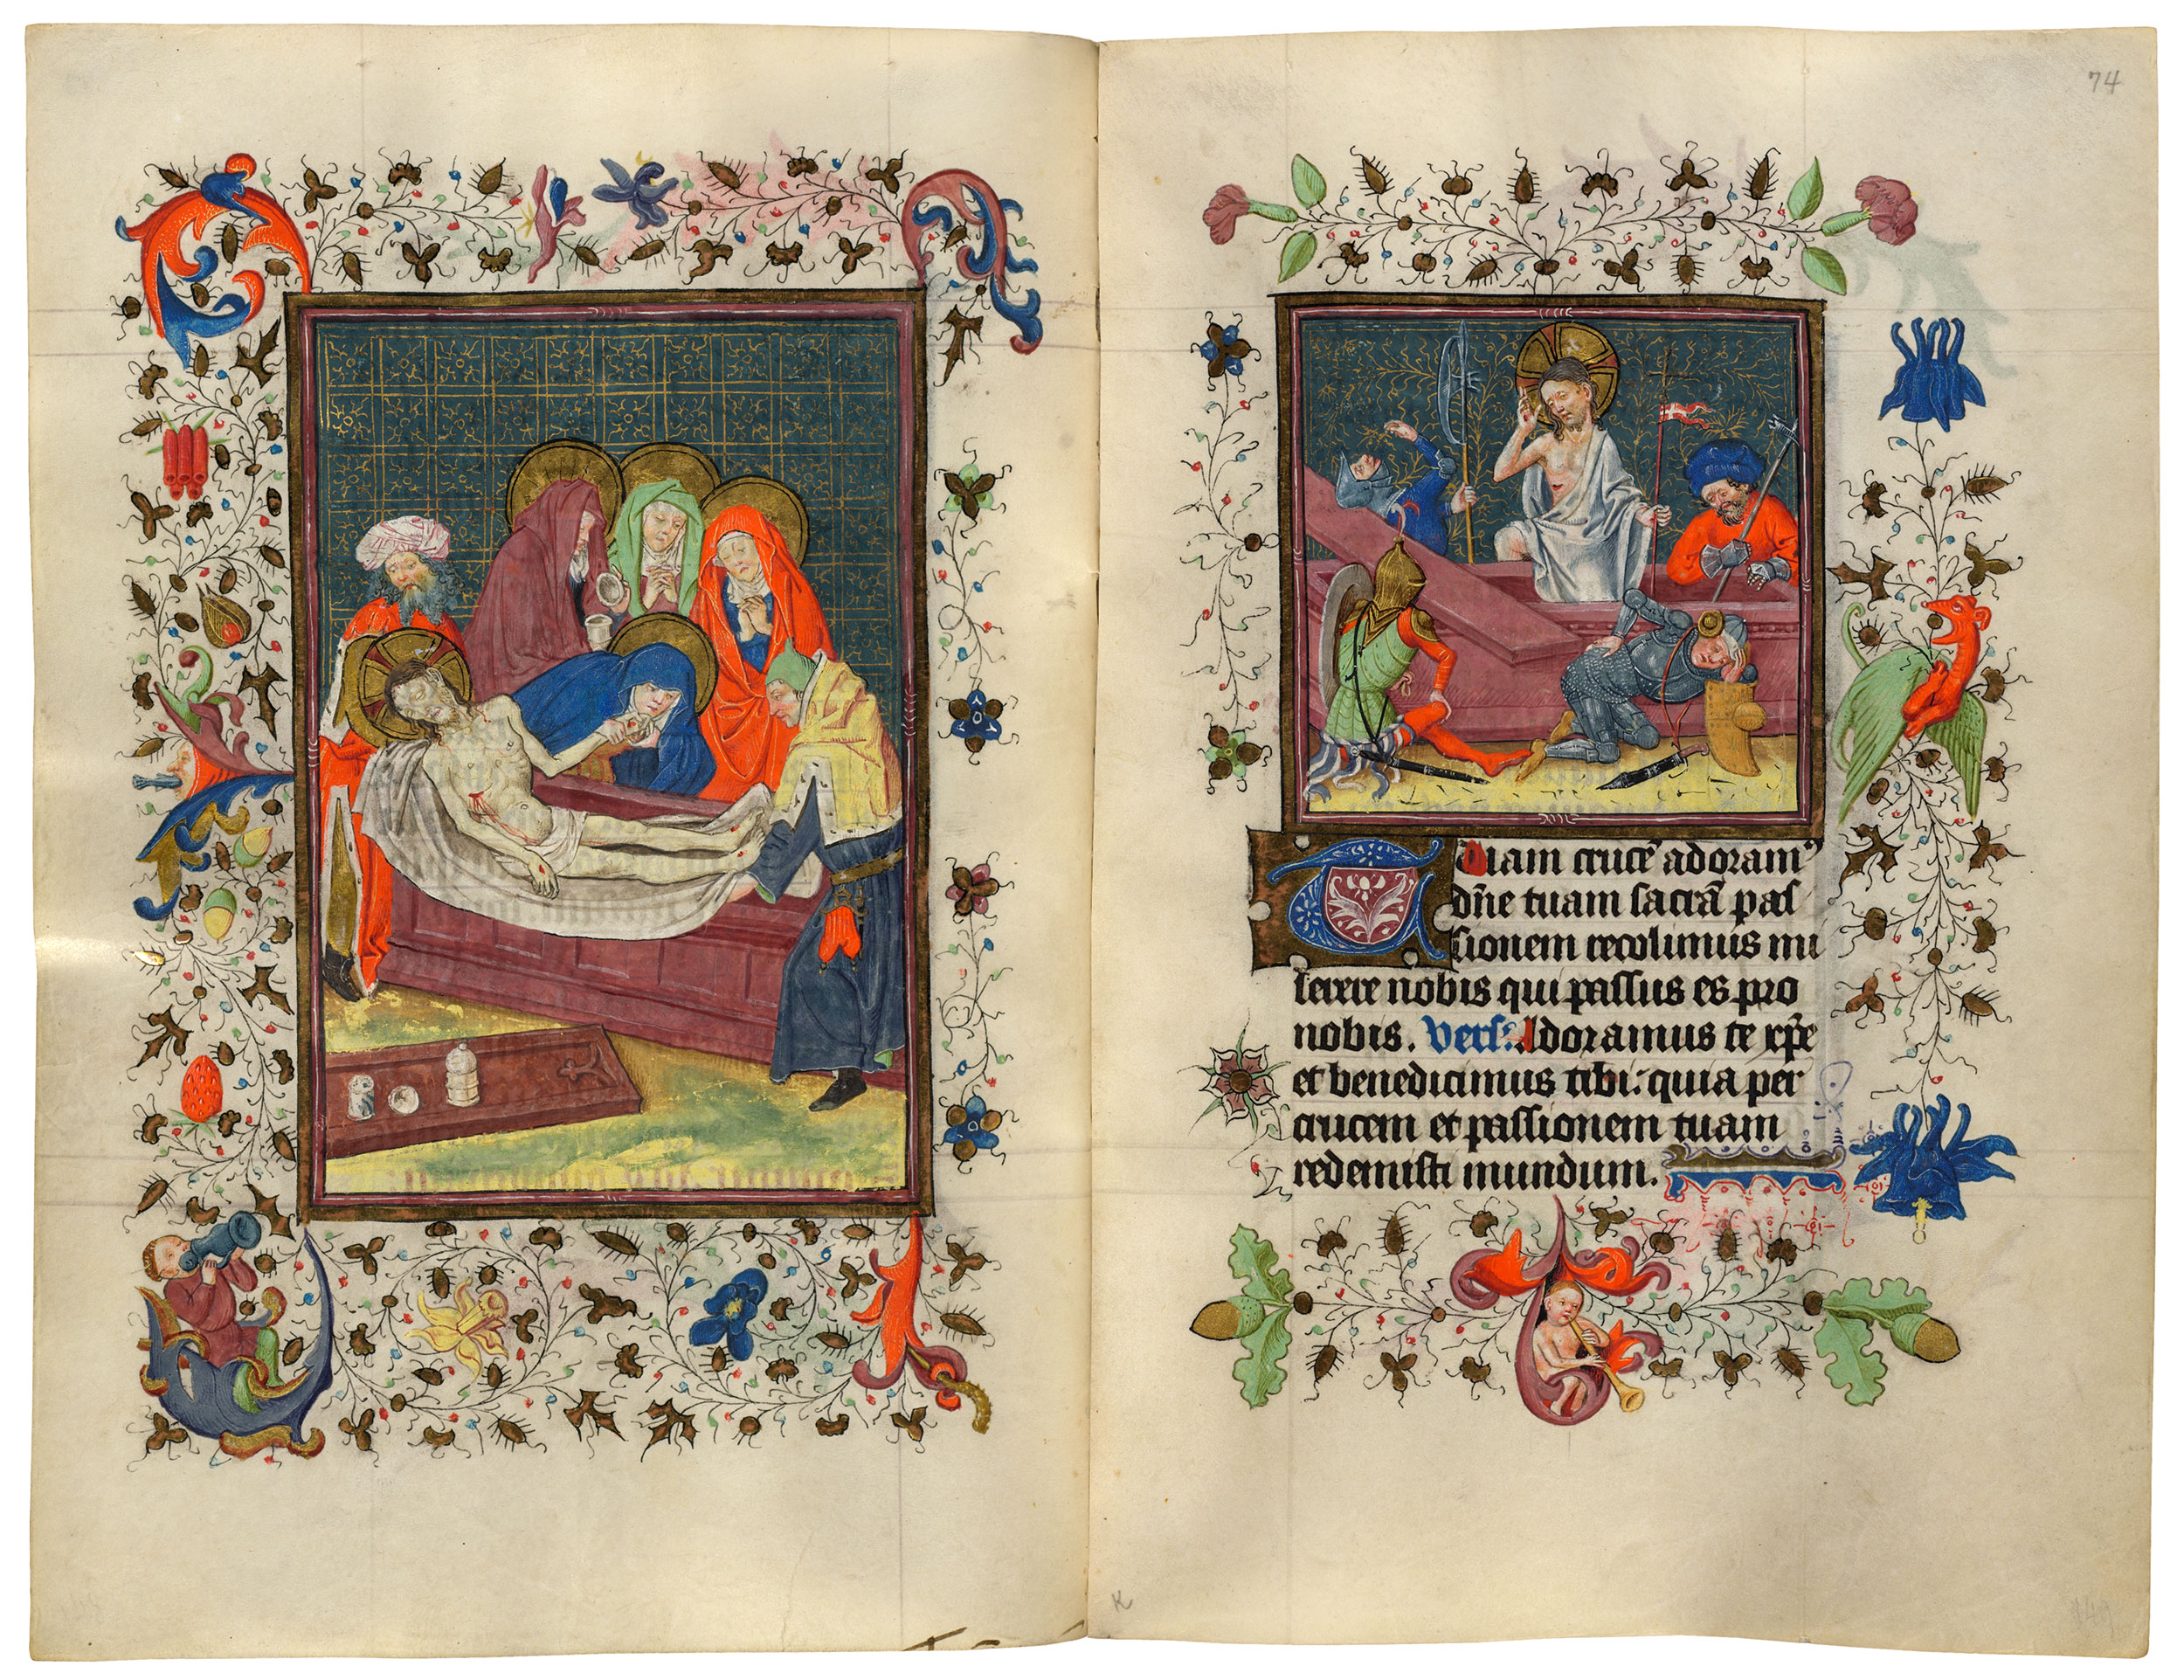 74
Tuam crucē adoramꝰ
dn̄e tuam sacrā pas
sionem recolimus mi
serere nobis qui passus es pro
nobis. Vers: Adoramus te xp̄e
et benedicimus tibi: quia per
crucem et passionem tuam
redemisti mundum.
K